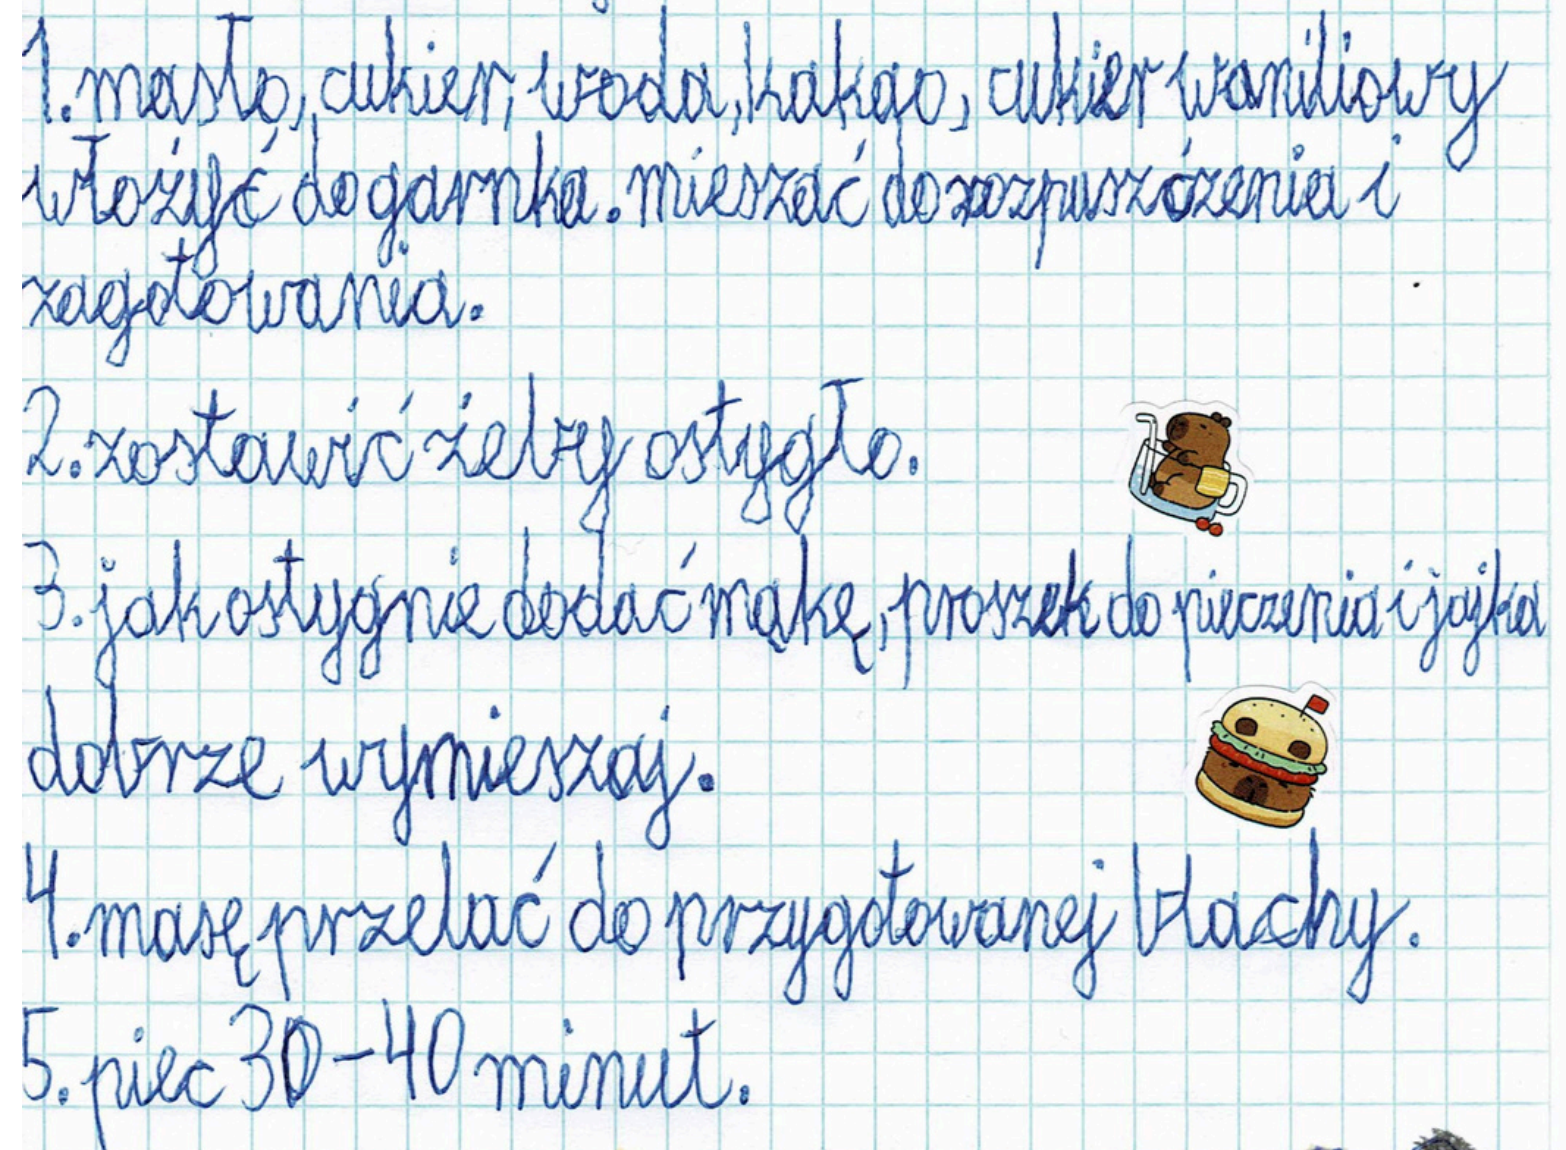 1. masło, cukier, woda, kakao, cukier waniliowy
włożyć do garnka. mieszać do rozpuszczenia i
zagotowania.
2. zostawić żeby ostygło.
3. jak ostygnie dodać mąkę, proszek do pieczenia i jajka
dobrze wymieszaj.
4. masę przelać do przygotowanej blachy.
5. piec 30-40 minut.